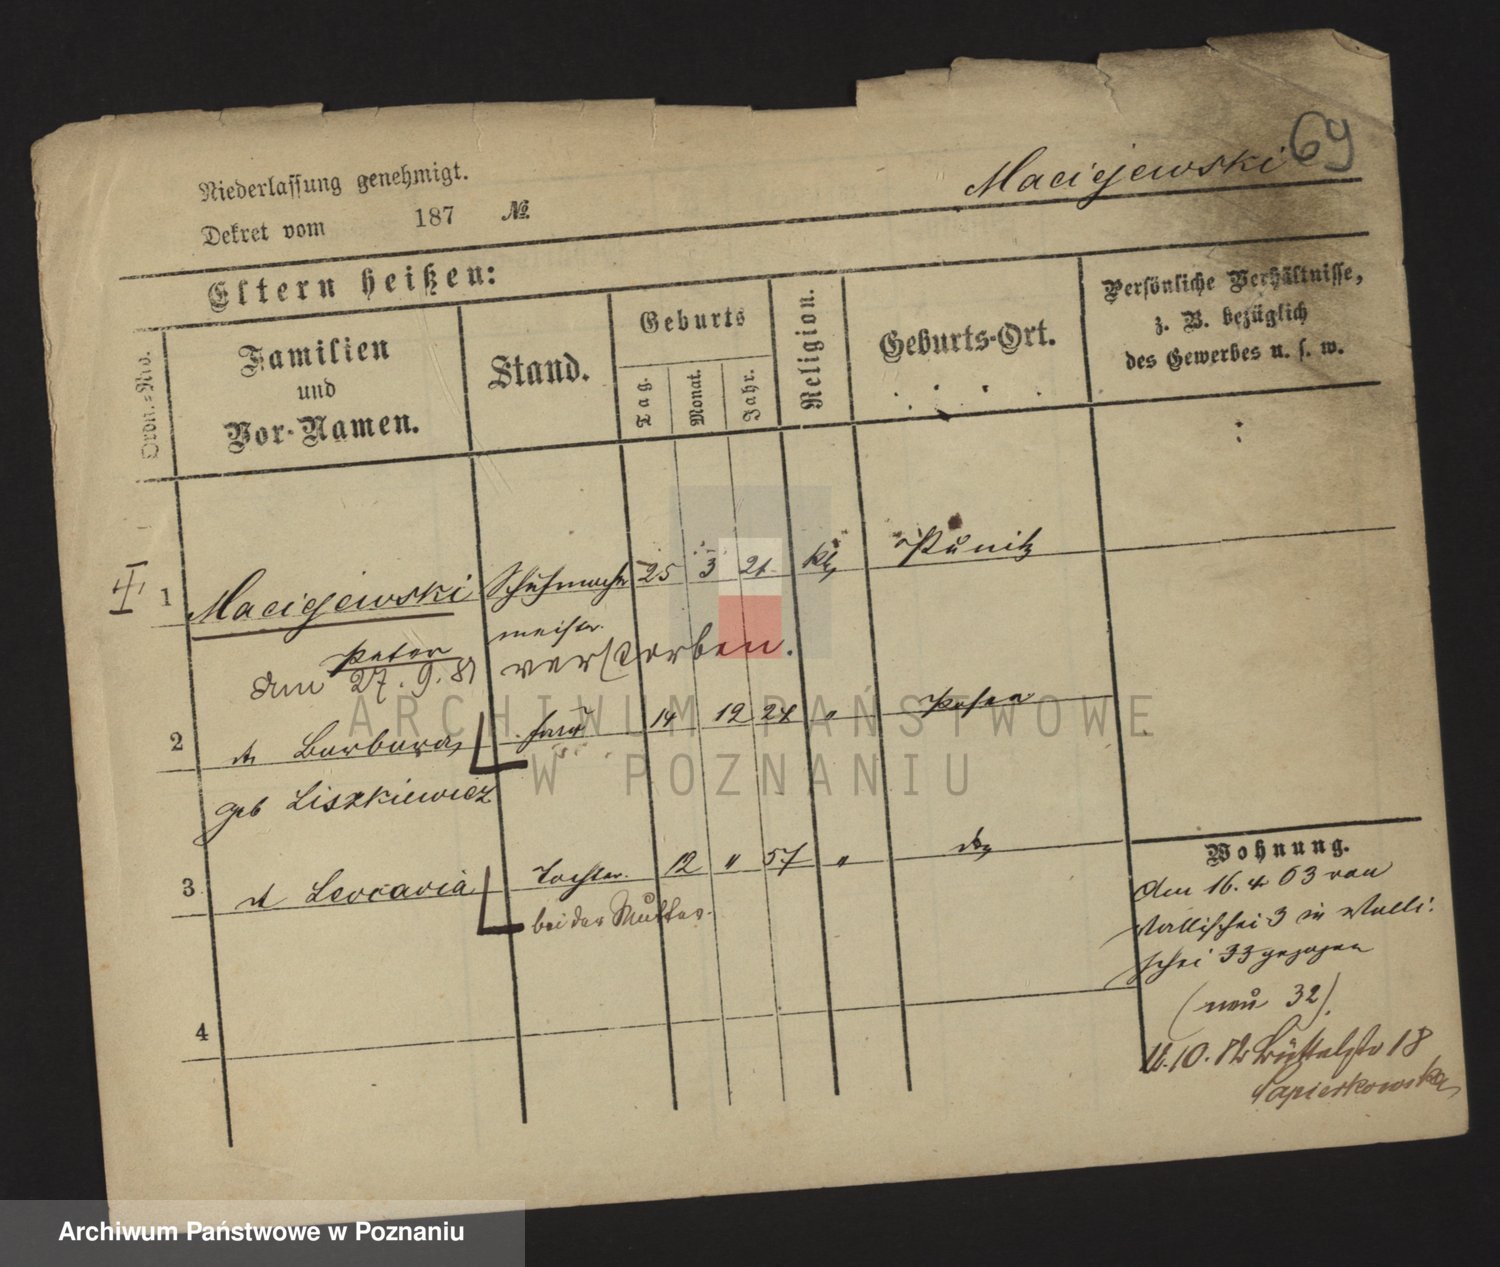 69
Maciejewski
Niederlassung genehmigt.
Dekret vom 187 №
Eltern heißen:
Ordn.-No.
Familien
und
Vor-Namen.
Stand.
Geburts
Tag.
Monat.
Jahr.
Religion.
Geburts-Ort.
Persönliche Verhältnisse,
z. B. bezüglich
des Gewerbes u. s. w.
I
1 Maciejewski Schuhmacher 25 3 21 Kth Punitz
Peter meister
am 27.9.81 verstorben.
2 Barbara Frau 14 12 24 " Posen
geb Liszkiewicz
3 Leocavia Tochter. 12 " 57 " do
bei der Mutter.
4
Wohnung.
Am 16.4 03 von
Wallischei 3 in Walli:
schei 33 gezogen
(neu 32).
10. 18
ARCHIWUM PAŃSTWOWE
W POZNANIU
Archiwum Państwowe w Poznaniu